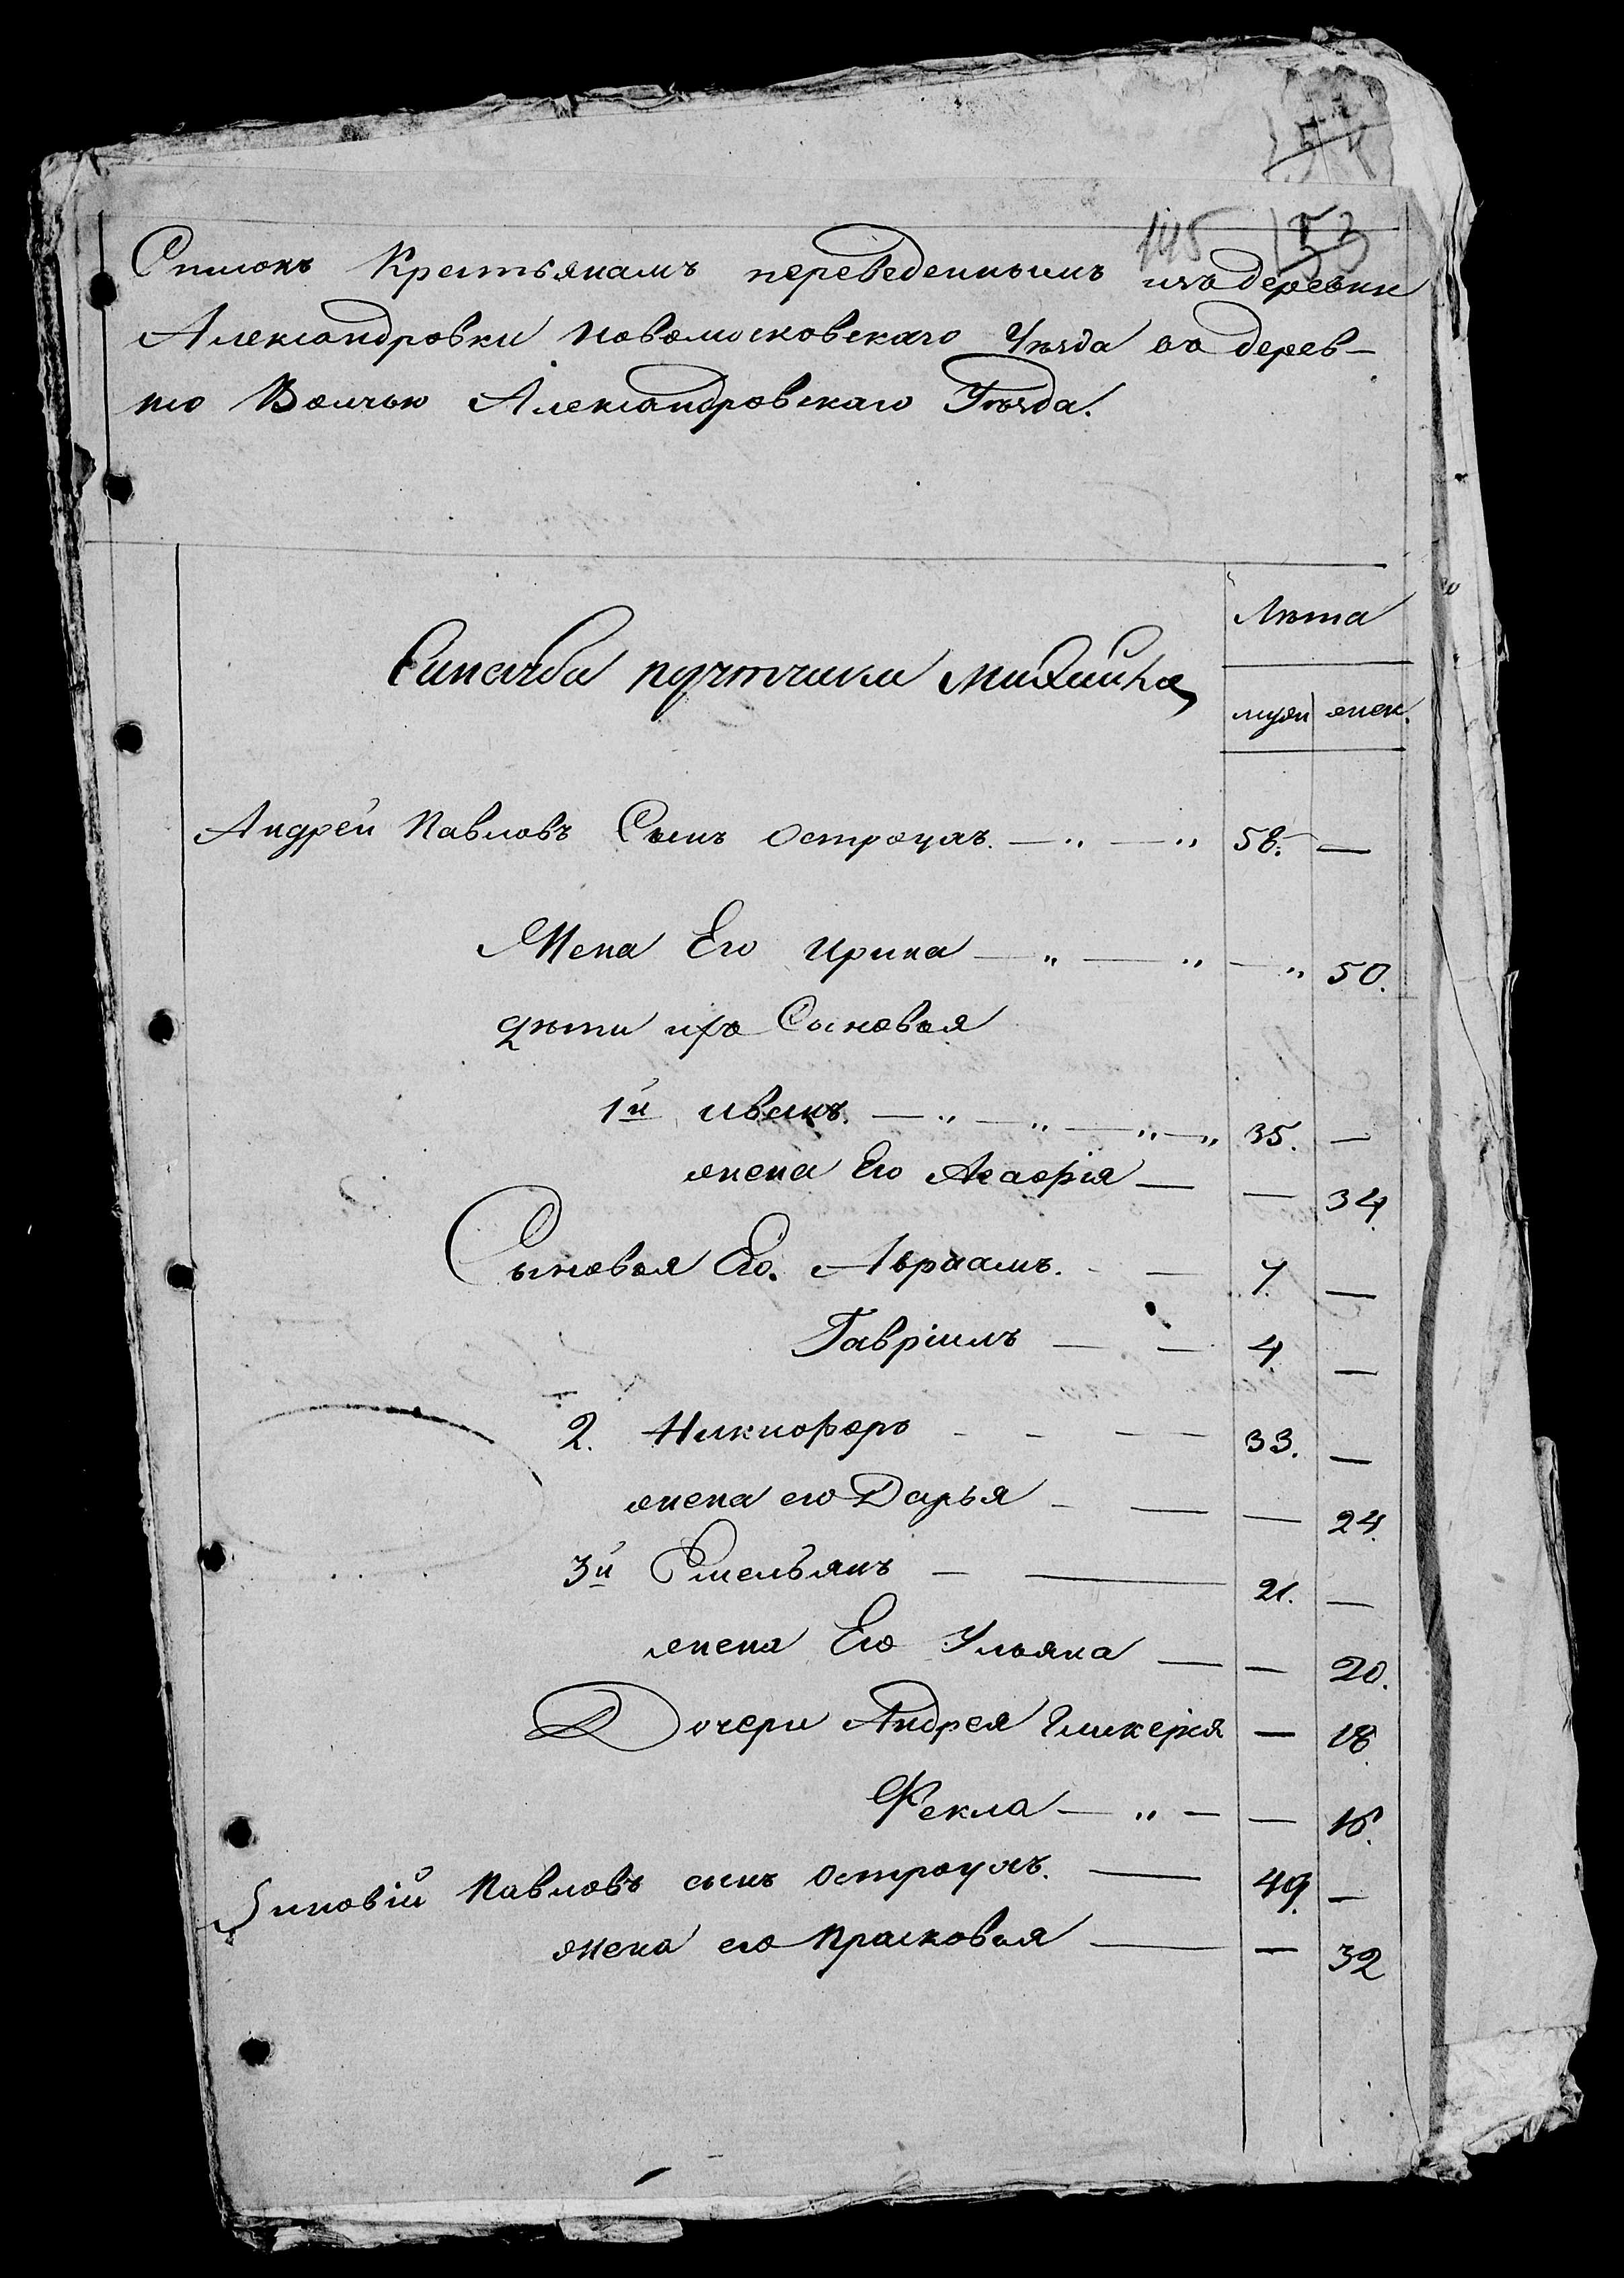 145 153
Списокъ Крестьянамъ переведеннымъ изъ деревни
Александровки Новомосковскаго Уѣзда въ дерев-
ню Волчью Александровскаго Уѣзда.
Лѣта
муж женс.
Андрей Павловъ Сынъ Остроухъ. — „ — „ 58. —
Жена Его Ирина — „ — „ — „ 50.
дѣти ихъ Сыновья
1й Иванъ. — „ — „ — „ — „ 35. —
жена Его Агафія — — 34.
Сыновья Его. Авраамъ. - — 7. —
Гавріилъ — — 4. —
2. Никифоръ - - — — 33. —
жена его Дарья - — — 24.
3й Емельянъ — — 21. —
жена Его Ульяна — — 20.
Дочери Андрея Гликерія — 18.
Фекла — „ — — 16.
Зиновій Павловъ сынъ Остроухъ. — 49. —
жена его Прасковья — — 32